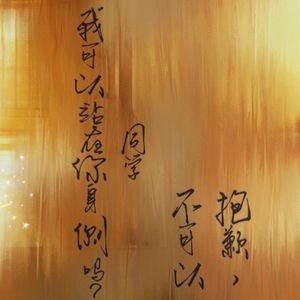 抱歉，
不可以
同学
我可以站在你身侧吗？